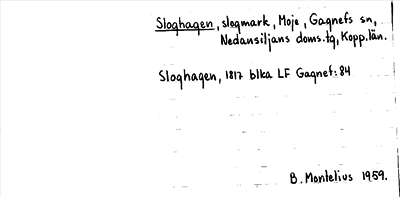 Sloghagen, slogmark, Moje, Gagnefs sn,
Nedansiljans doms.tg, Kopp.län.
Sloghagen, 1817 blka LF Gagnef: 84
B. Montelius 1959.